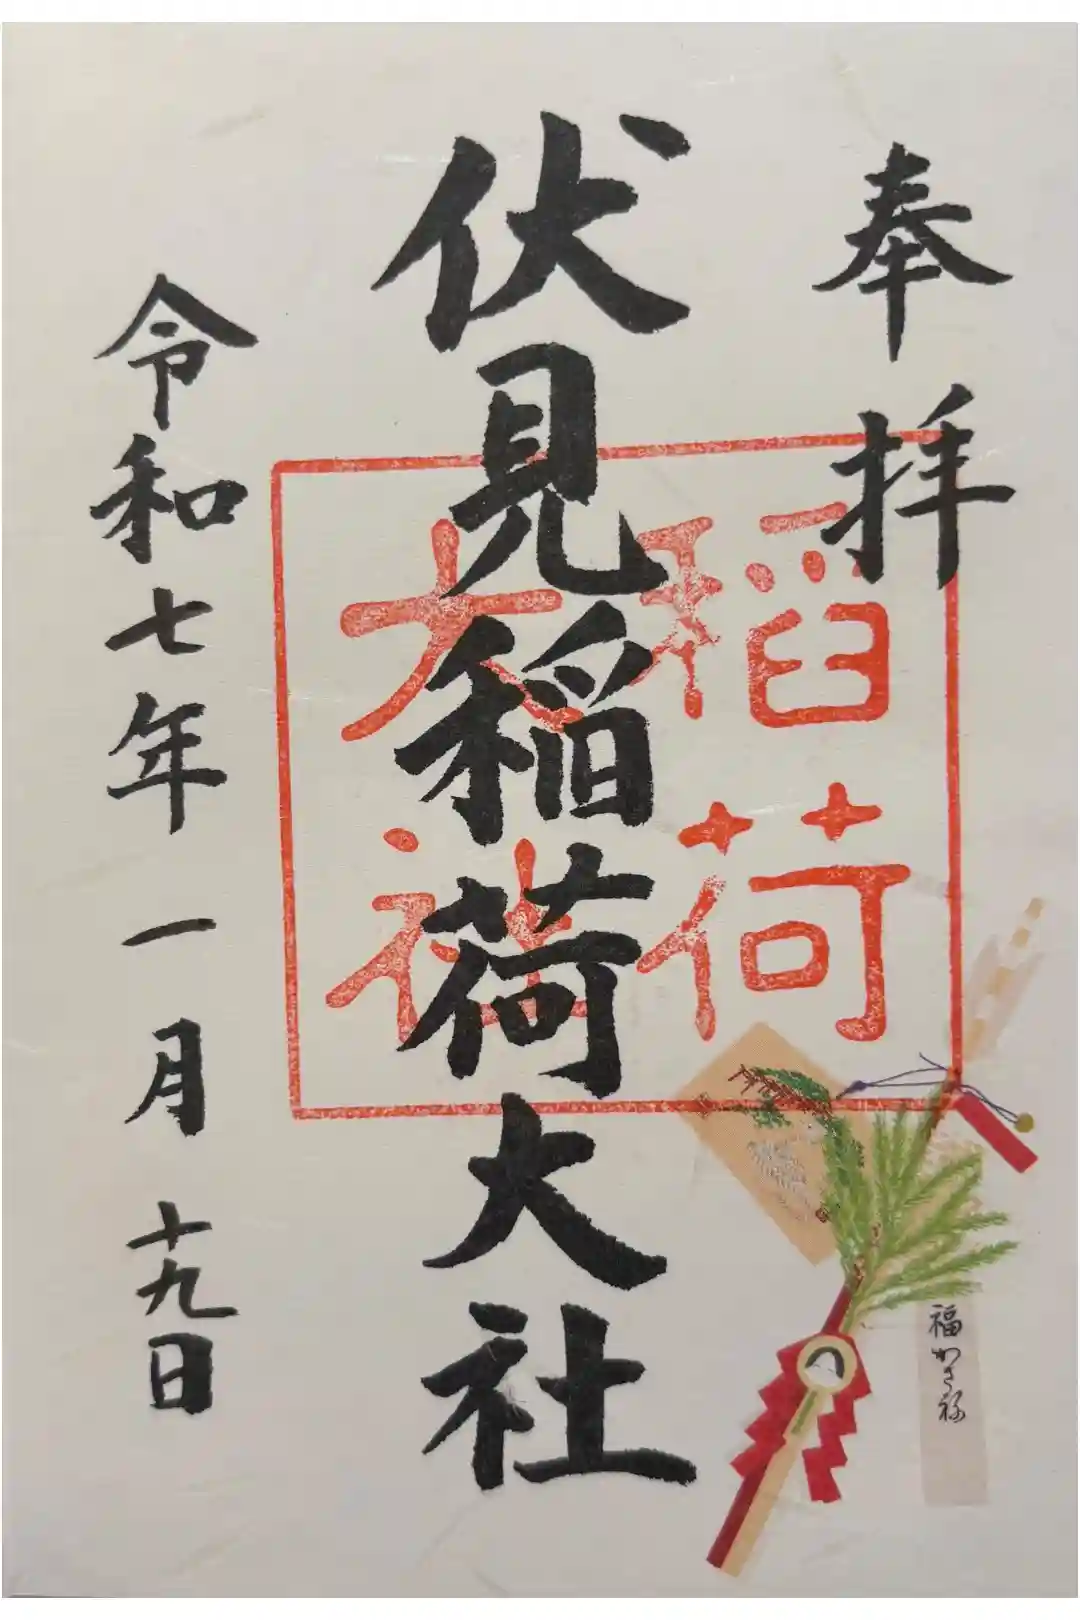 奉拝
伏見稲荷大社
令和七年一月十九日
稲荷
大社
福かさね